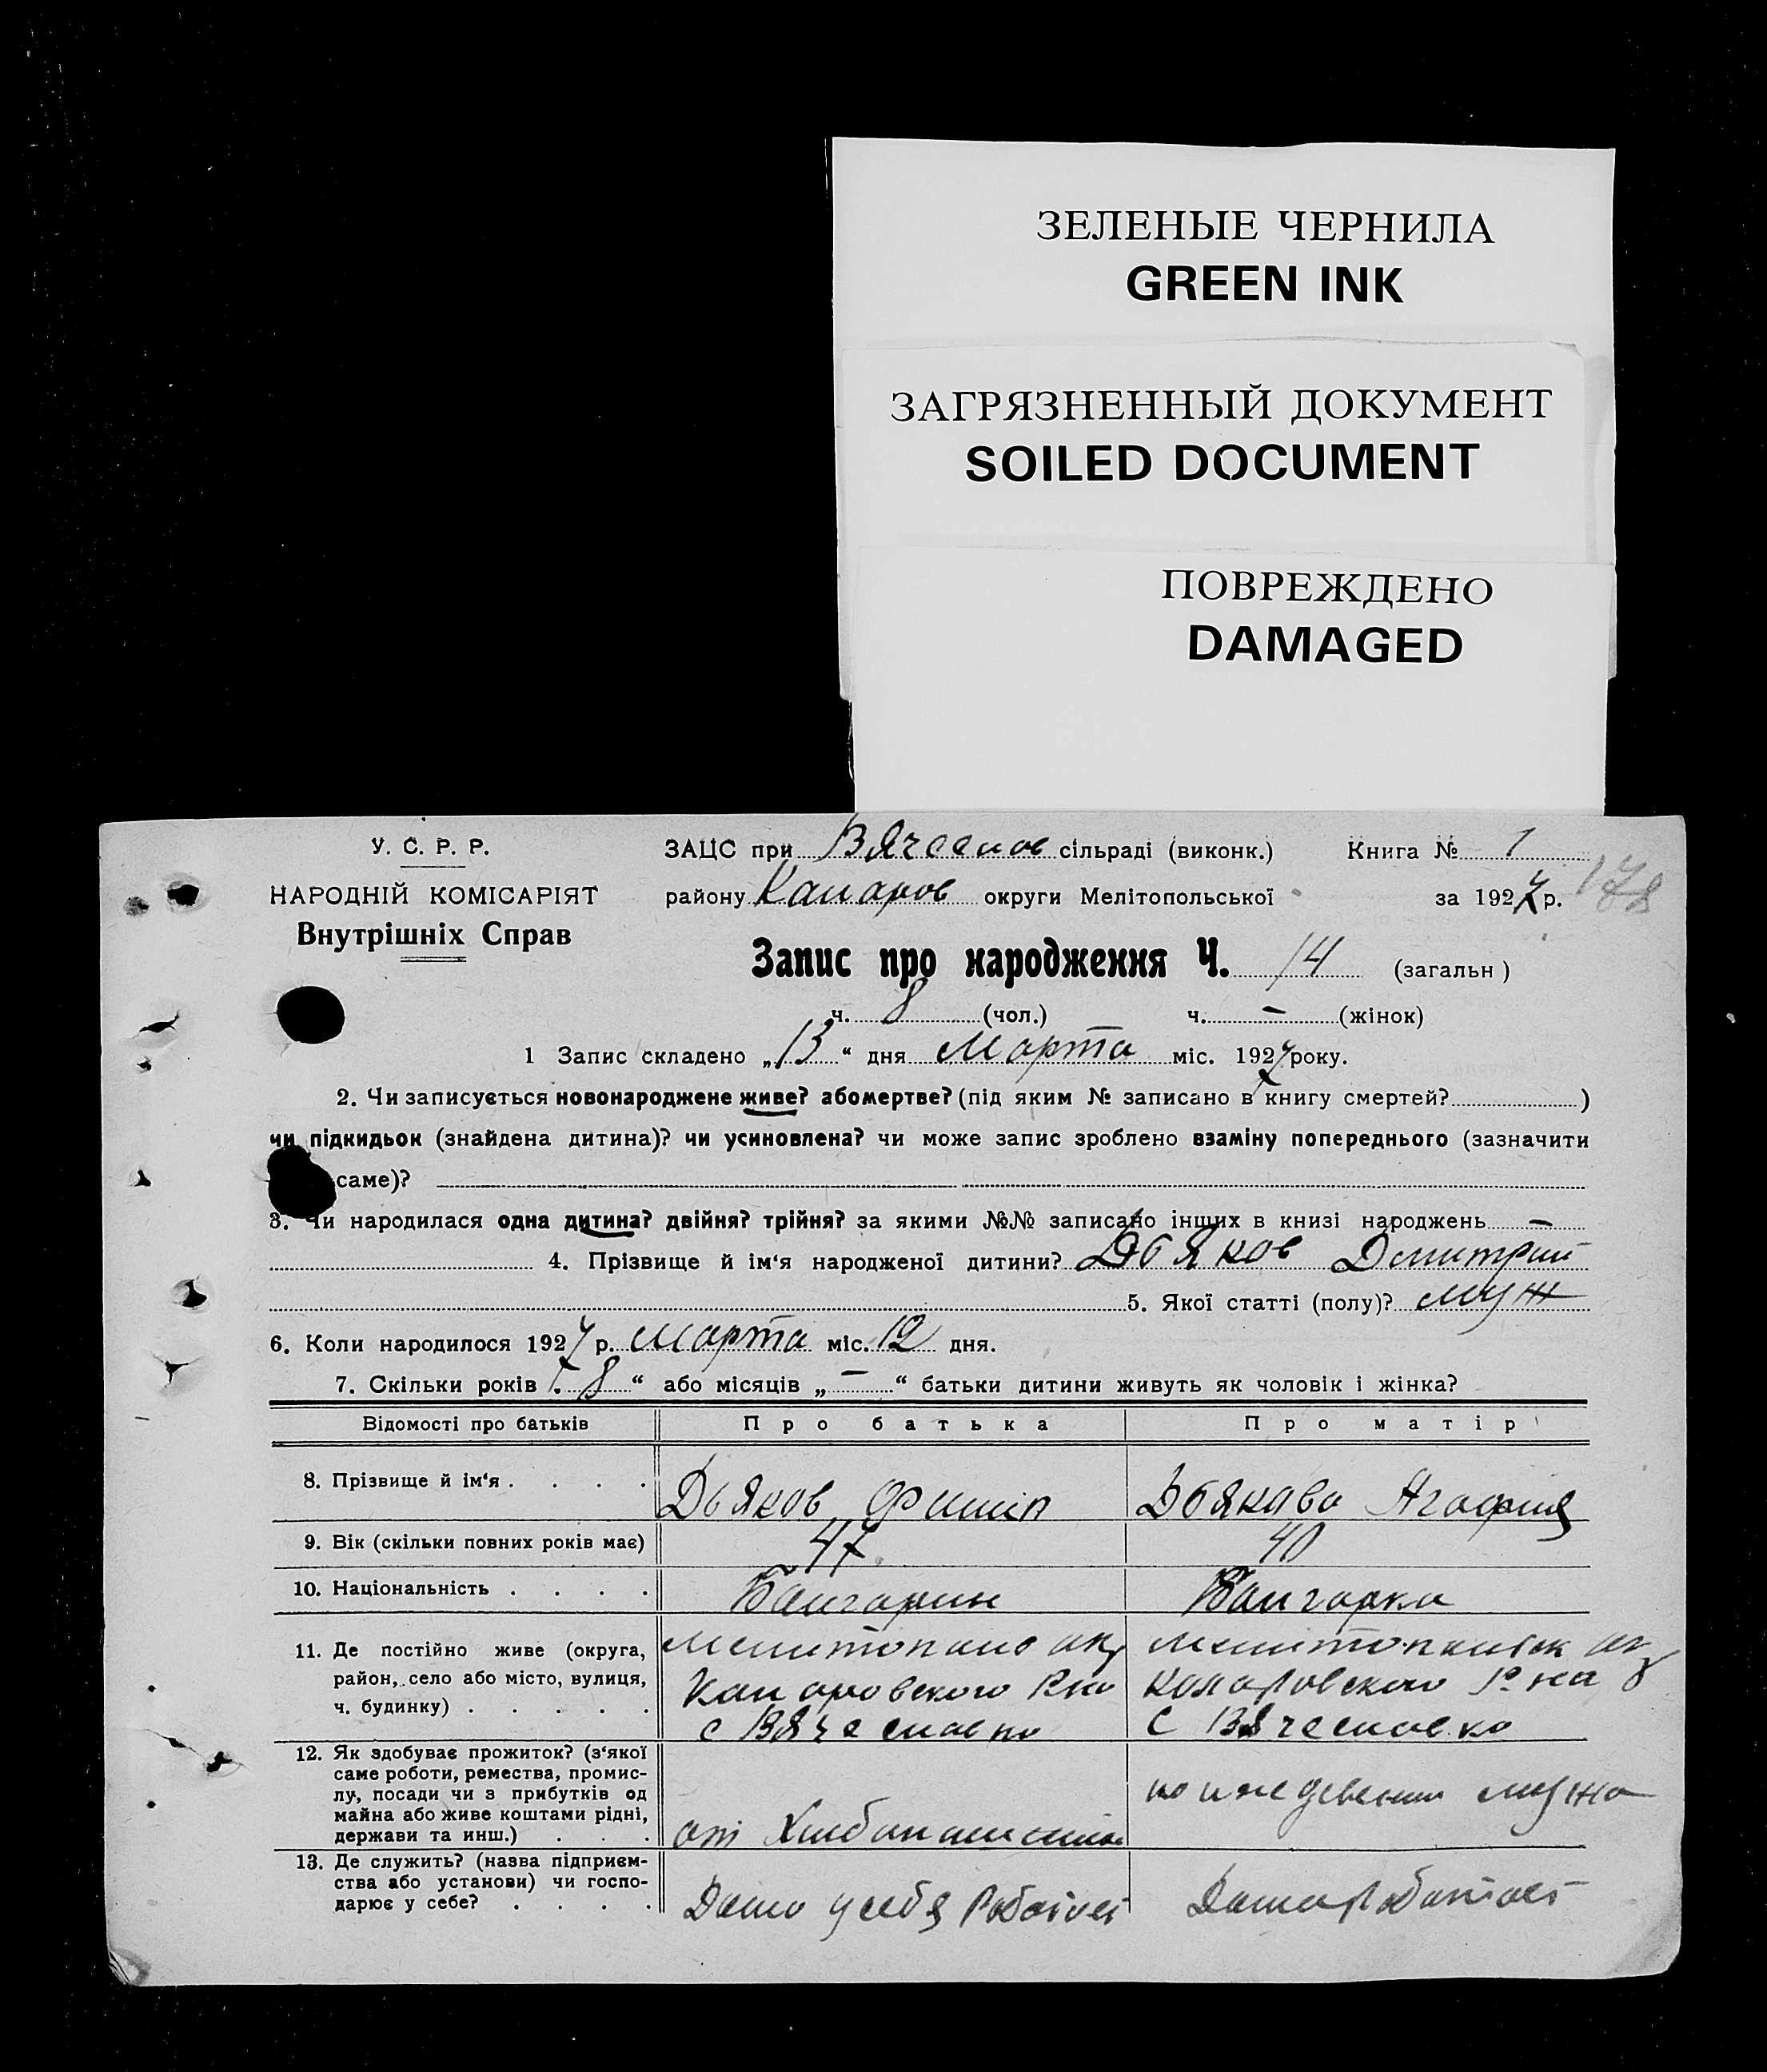 ЗЕЛЕНЫЕ ЧЕРНИЛА
GREEN INK
ЗАГРЯЗНЕННЫЙ ДОКУМЕНТ
SOILED DOCUMENT
ПОВРЕЖДЕНО
DAMAGED
У. С. Р. Р.
НАРОДНІЙ КОМІСАРІЯТ
Внутрішніх Справ
ЗАЦС при Вячеслов сільраді (виконк.) Книга № 1
району Каларов округи Мелітопольської за 1927 р. 178
Запис про народження Ч. 14 (загальн )
ч. 8 (чол.) ч. — (жінок)
1 Запис складено „13“ дня Марта міс. 1927 року.
2. Чи записується новонароджене живе? або мертве? (під яким № записано в книгу смертей? )
чи підкидьок (знайдена дитина)? чи усиновлена? чи може запис зроблено взаміну попереднього (зазначити
саме)?
3. Чи народилася одна дитина? двійня? трійня? за якими №№ записано інших в книзі народжень —
4. Прізвище й ім‘я народженої дитини? Дьяков Дмитрий
5. Якої статті (полу)? муж
6. Коли народилося 1927 р. Марта міс. 12 дня.
7. Скільки років 8“ або місяців „—“ батьки дитини живуть як чоловік і жінка?
Відомості про батьків Про батька Про матір
8. Прізвище й ім‘я . . . . Дьяков Филип Дьякова Агафия
9. Вік (скільки повних років має) 47 40
10. Національність . . . . Балгарин Балгарка
11. Де постійно живе (округа,
район, село або місто, вулиця,
ч. будинку) . . . . .
Мелитопальс окр
Каларовского Р-на
с Вячеславка
Мелитопальск окр
Коларовского Р-на
с Вячеславка
12. Як здобуває прожиток? (з‘якої
саме роботи, ремества, промис-
лу, посади чи з прибутків од
майна або живе коштами рідні,
держави та инш.) . . .
от Хлебопашества
на иждевении мужа
13. Де служить? (назва підприєм-
ства або установи) чи госпо-
дарює у себе? . . . .
Дама у себя Работает
Дама Работает